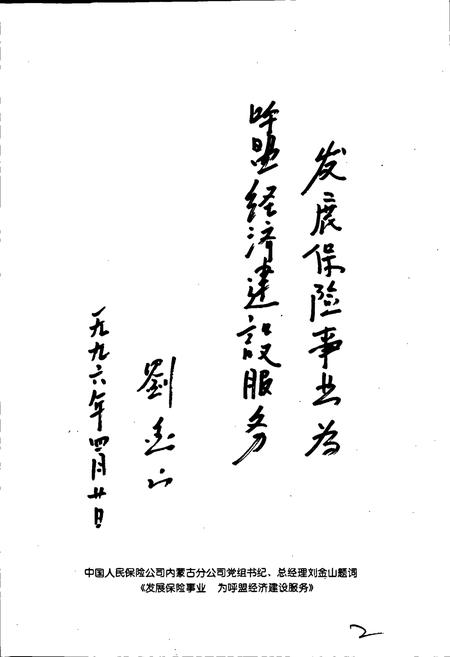 发展保险事业为
呼盟经济建設服务
劉金山
一九九六年四月廿日
中国人民保险公司内蒙古分公司党组书纪、总经理刘金山题词
《发展保险事业　为呼盟经济建设服务》
2